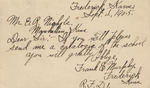 Frederick, Kans.
Sept. 2, 1905.
Mr. E. R. Nichols
Manhattan, Kans.
Dear Sir: If you will please
send me a catalogue of the school
you will greatly
oblige.
Frank E. Murphy
Frederick
R.F.D. 1. Kans.